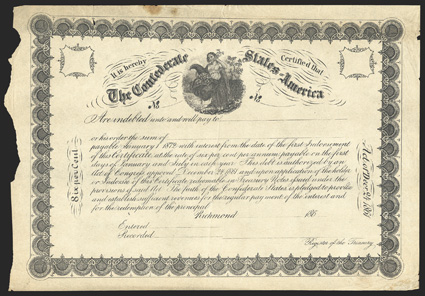 It is hereby Certified that
The Confederate States of America
No No
Are indebted unto and will pay to
or his order the sum of
payable January 1 1872 with interest from the date of the first Endorsement
of this Certificate at the rate of six per cent per annum payable on the first
days of January and July in each year. This debt is authorized by an
Act of Congress approved December 24 1861 and upon application of the holder
or Indorsee of this Certificate redeemable in Treasury Notes fund under the
provisions of said Act. The faith of the Confederate States is pledged to provide
and establish sufficient revenues for the regular payment of the interest and
for the redemption of the principal
Richmond 186
Entered
Recorded
Register of the Treasury
Six per Cent